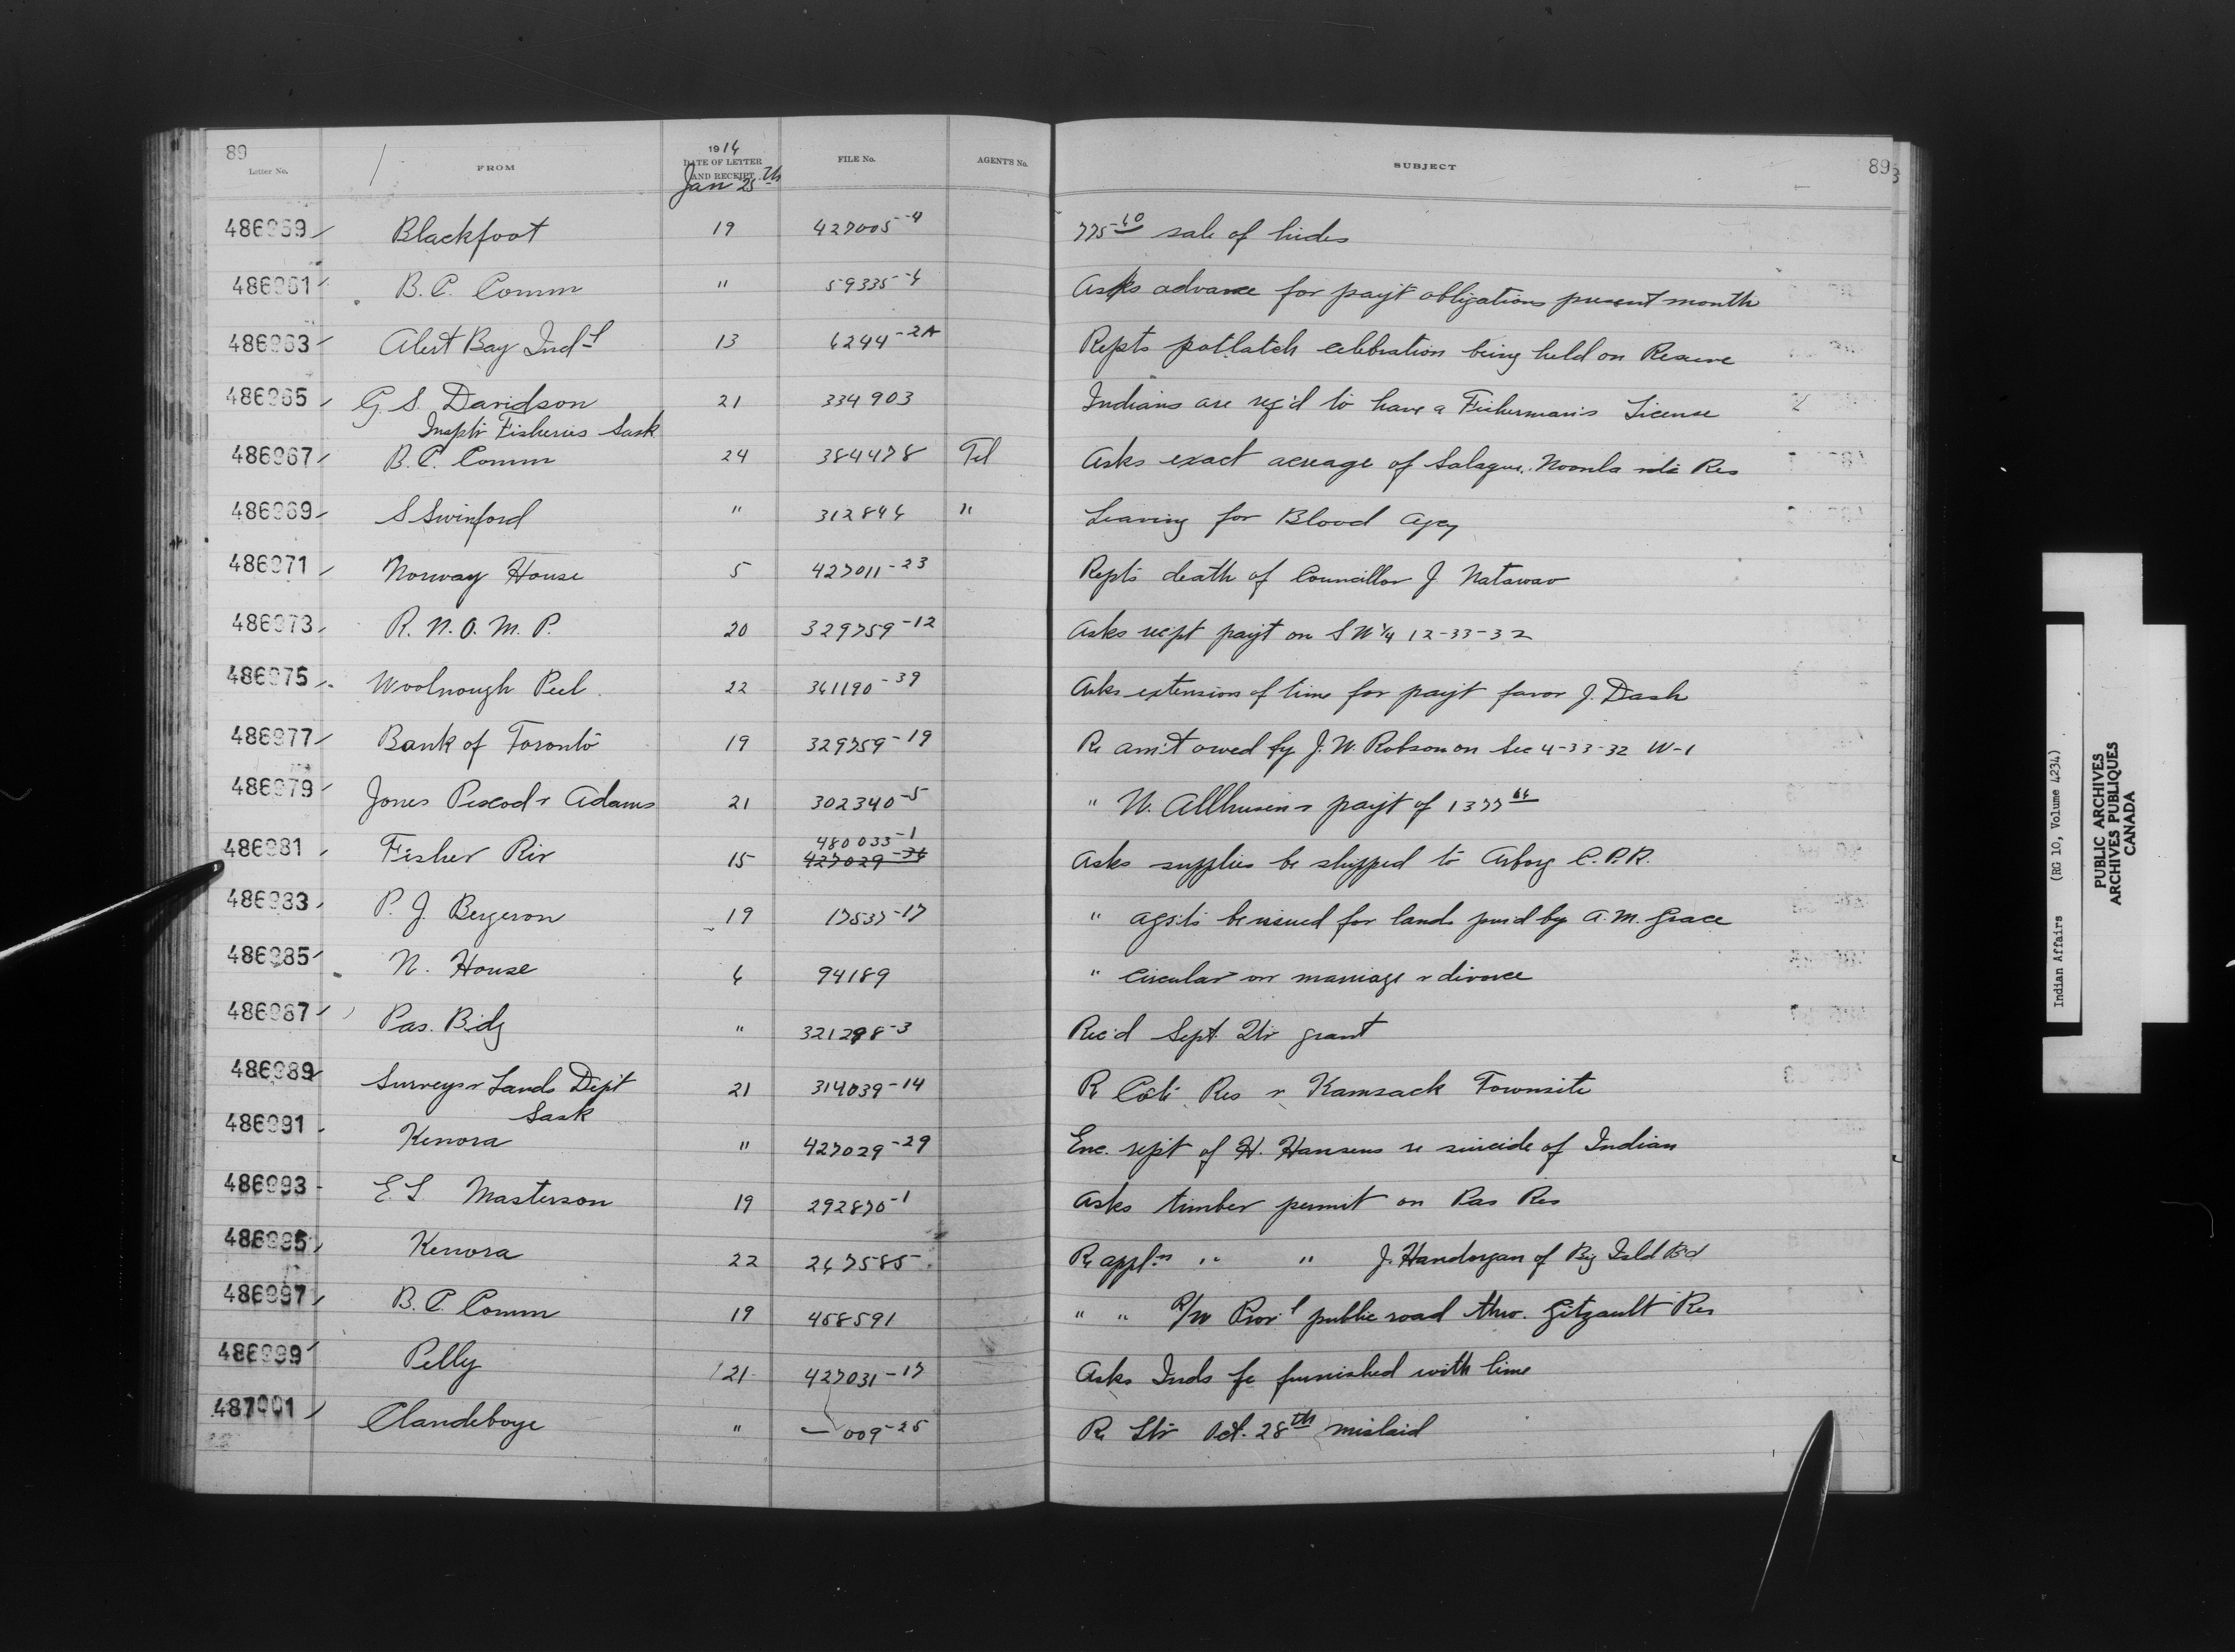 89 1914 89
Letter No. FROM DATE OF LETTER AND RECEIPT FILE No. AGENT'S No. SUBJECT
Jan 25th
486959 Blackfoot 19 427005-4 775-60 sale of hides
486961 B.C. Comm " 59335-6 Asks advance for payt obligations present month
486963 Alert Bay Ind-l 13 6244-2A Repts potlatch celebration being held on Reserve
486965 G. S. Davidson 21 334903 Indians are req'd to have a Fisherman's License
Insptr Fisheries Sask
486967 B.C. Comm 24 384478 Tel Asks exact acreage of Res
486969 S Swinford " 312846 " Leaving for Blood Agcy
486971 Norway House 5 427011-23 Repts death of Councillor J. Natawao
486973 R. N. O. M. P. 20 329759-12 Asks rept payt on S W 1/4 12-33-32
486975 Woolnough Peel 22 361190-39 Asks extension of time for payt favor J. Dash
486977 Bank of Toronto 19 329759-19 Re am't owed by J. W. Robson on Sec 4-33-32 W-1
486979 Jones Pescod & Adams 21 302340-5 " W. Allhusen's payt of 1377 66
486981 Fisher Riv 15 480033-1 427029-36 Asks supplies be shipped to Arborg C.P.R.
486983 P. J. Bergeron 19 17537-17 " be issued for lands by A. M. Grace
486985 N. House 6 94189 " circular on marriage & divorce
486987 Pas. Bdg " 321298-3 Rec'd Sept. Qtr grant
486989 Surveys & Lands Dept 21 314039-14 Re Coté Res & Kamsack Townsite
Sask
486991 Kenora " 427029-29 Enc. rept of H. Hansens re suicide of Indian
486993 E. L. Masterson 19 292870-1 Asks timber permit on Pas Res
486995 Kenora 22 267585 Re appl-n " " J. Handorgan of Big Isld Bd
486997 B.C. Comm 19 458591 " " R/W Prov-l public road thro. Gitzault Res
486999 Pelly 21 427031-17 Asks Inds be furnished with lime
487001 Clandeboye " — 009-25 Re Ltr Oct. 28th mislaid
Indian Affairs (RG 10, Volume 4234)
PUBLIC ARCHIVES
ARCHIVES PUBLIQUES
CANADA